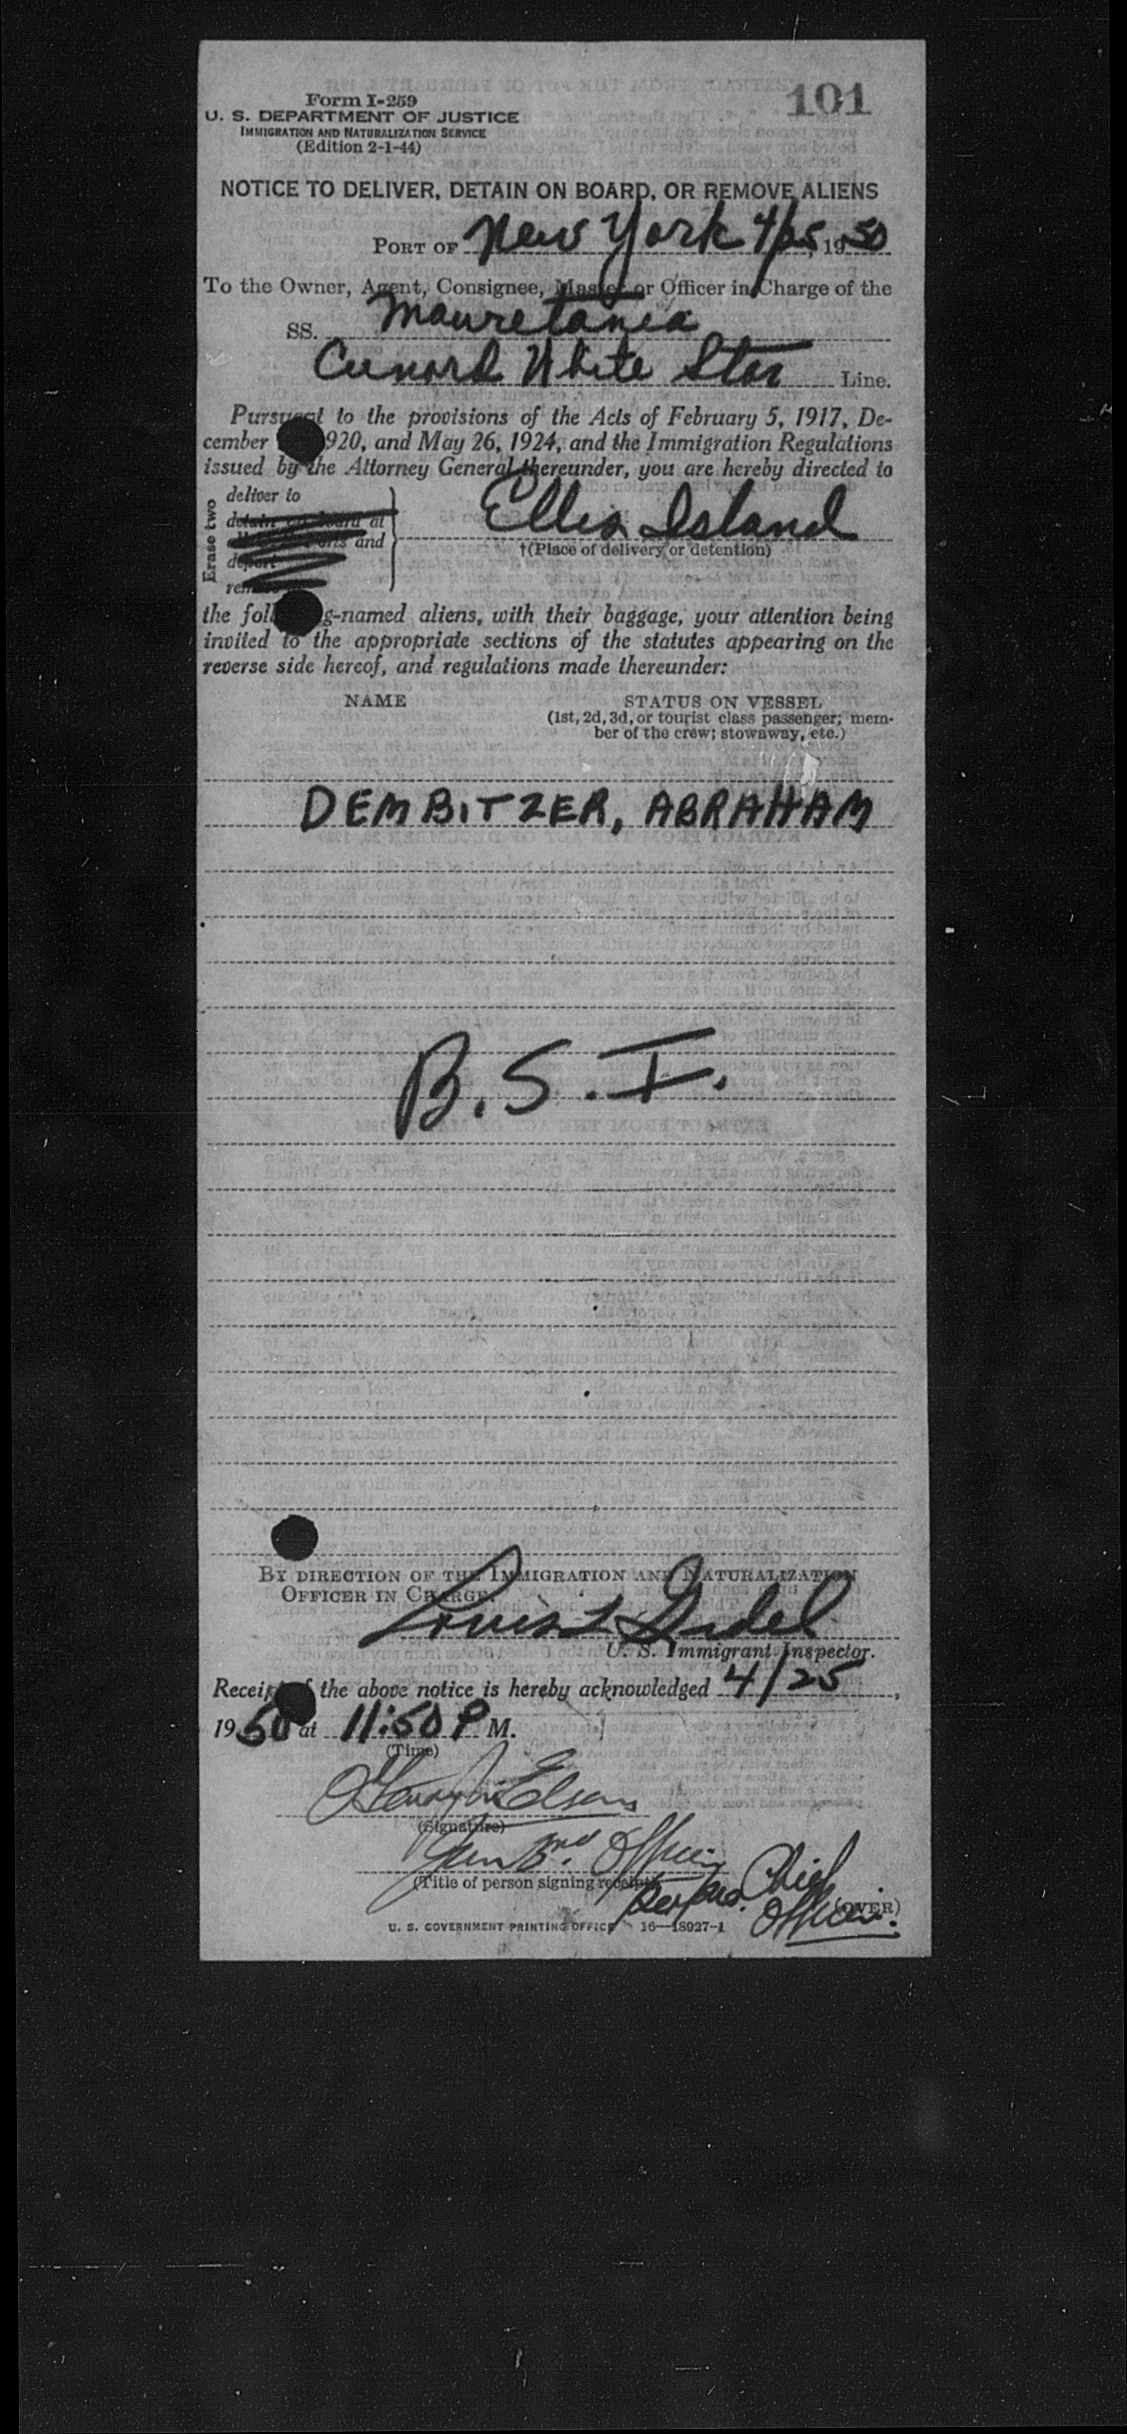 101
Form I-259
U. S. DEPARTMENT OF JUSTICE
IMMIGRATION AND NATURALIZATION SERVICE
(Edition 2-1-44)
NOTICE TO DELIVER, DETAIN ON BOARD, OR REMOVE ALIENS
PORT OF New York 4/25, 1950
To the Owner, Agent, Consignee, Master or Officer in Charge of the
SS. Mauretania
Cunard White Star Line.
Pursuant to the provisions of the Acts of February 5, 1917, De-
cember 920, and May 26, 1924, and the Immigration Regulations
issued by the Attorney General thereunder, you are hereby directed to
Erase two
deliver to
detain on board at
and
deport
Ellis Island
†(Place of delivery or detention)
the fol g-named aliens, with their baggage, your attention being
invited to the appropriate sections of the statutes appearing on the
reverse side hereof, and regulations made thereunder:
NAME STATUS ON VESSEL
(1st, 2d, 3d, or tourist class passenger; mem-
ber of the crew; stowaway, etc.)
DEMBITZER, ABRAHAM
B. S. I.
BY DIRECTION OF THE IMMIGRATION AND NATURALIZATION
OFFICER IN CHARGE.
Louis
U. S. Immigrant Inspector.
Receipt of the above notice is hereby acknowledged 4/25,
1950 at 11:50 P M.
(Time)
(Signature)
Officer
(Title of person signing receipt)
Chief
Officer.
(OVER)
U. S. GOVERNMENT PRINTING OFFICE 16—18927-1